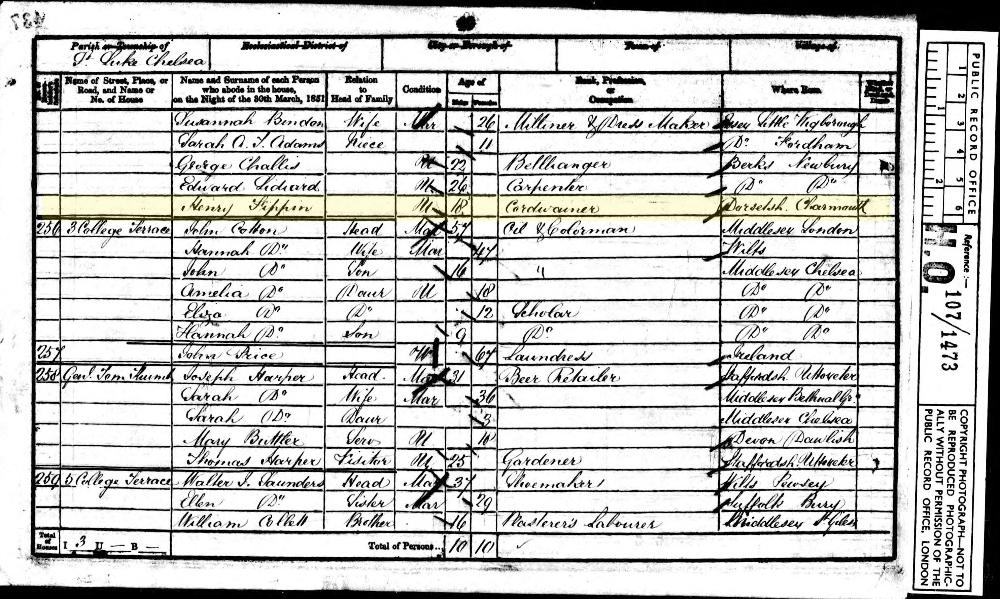 Parish or Township of Ecclesiastical District of City or Borough of Town of Village of
St Luke Chelsea
Name of Street, Place, or Road, and Name or No. of House Name and Surname of each Person who abode in the house, on the Night of the 30th March, 1851 Relation to Head of Family Condition Age of Males Females Rank, Profession, or Occupation Where Born
Susannah Bindon Wife Mar 26 Milliner & Dress Maker Essex Little Wigborough
Sarah A. T. Adams Niece 11 Do Fordham
George Challis U 22 Bellhanger Berks Newbury
Edward U 26 Carpenter Do Do
Henry U 18 Cordwainer Dorsetsh. Charmouth
256 3 College Terrace John Cotton Head Mar 57 Oil & Colorman Middlesex London
Hannah Do Wife Mar 47 Wilts
John Do Son 16 " Middlesex Chelsea
Amelia Do Daur U 18 Do Do
Eliza Do Do 12 Scholar Do Do
Hannah Do Son 9 Do Do Do
257 John Price W 67 Laundress Ireland
258 Genl. Tom Thumb Joseph Harper Head Mar 31 Beer Retailer Staffordsh Uttoxeter
Sarah Do Wife Mar 36 Middlesex Bethnal Gn
Sarah Do Daur 3 Middlesex Chelsea
Mary Buttler Serv U Devon Dawlish
Thomas Harper Visitor U 25 Gardener Staffordsh Uttoxeter
259 5 College Terrace Walter J. Saunders Head Mar 37 Shoemaker Wilts Pewsey
Ellen Do Sister Mar 29 Suffolk Bury
William Collett Brother 16 Plasterer's Labourer Middlesex St Giles
Total of Houses I 3 U — B — Total of Persons... 10 10
PUBLIC RECORD OFFICE
1 2 3 4 5 6
1 2
Reference:-
H.O. 107/1473
COPYRIGHT PHOTOGRAPH—NOT TO BE REPRODUCED PHOTOGRAPHICALLY WITHOUT PERMISSION OF THE PUBLIC RECORD OFFICE, LONDON